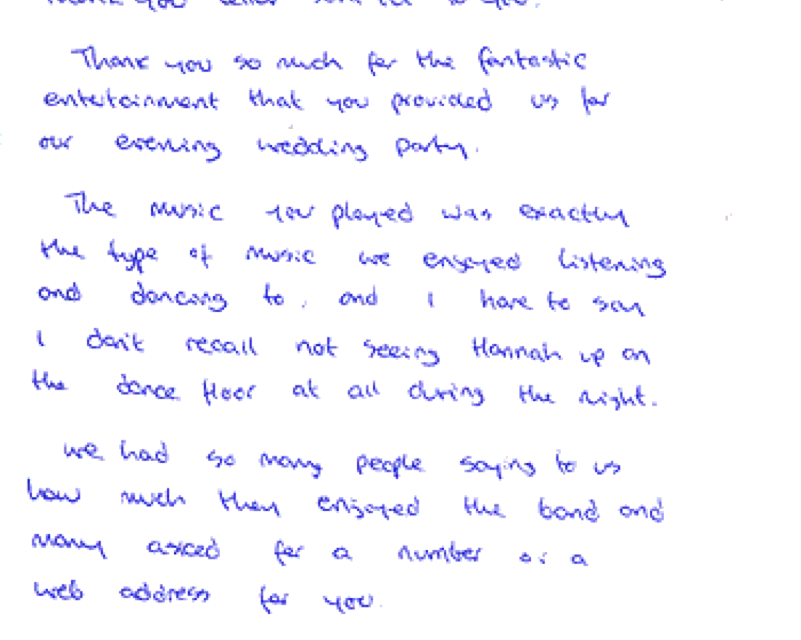 Thank you so much for the fantastic
entertainment that you provided us for
our evening wedding party.
The music you played was exactly
the type of music we enjoyed listening
and dancing to, and I have to say
I don't recall not seeing Hannah up on
the dance floor at all during the night.
we had so many people saying to us
how much they enjoyed the band and
many asked for a number or a
web address for you.